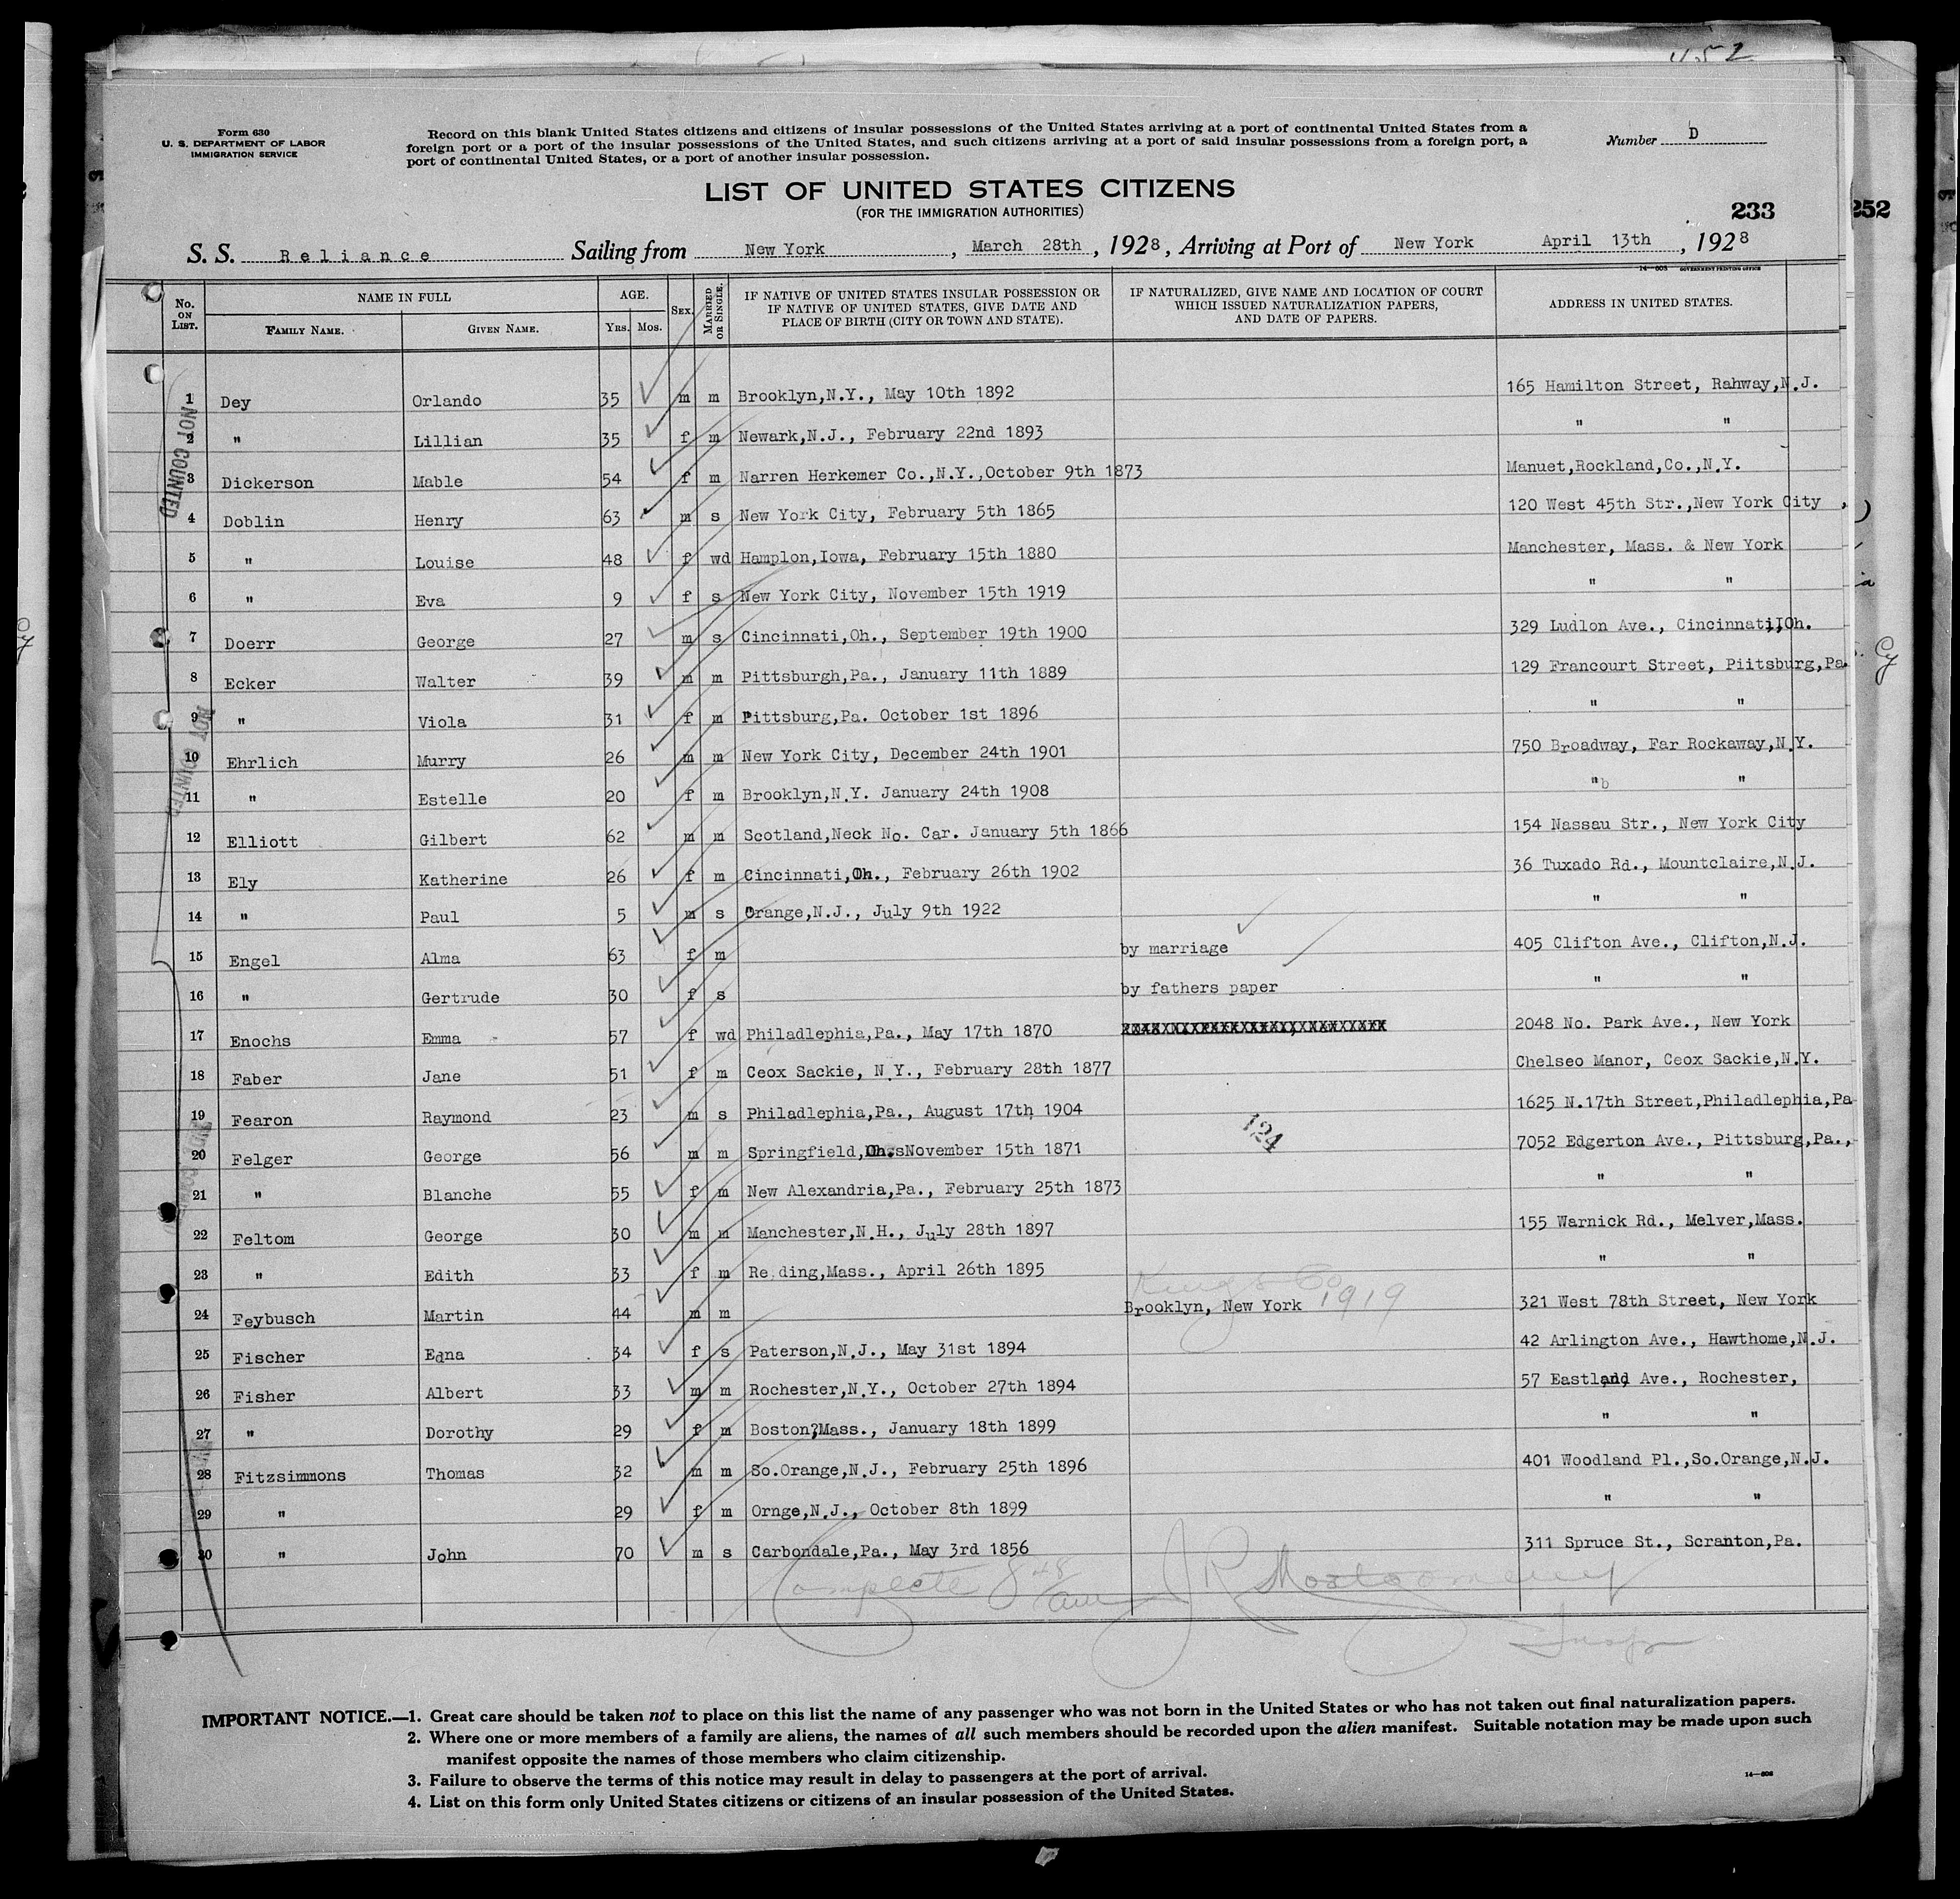 452
Form 630
U. S. DEPARTMENT OF LABOR
IMMIGRATION SERVICE
Record on this blank United States citizens and citizens of insular possessions of the United States arriving at a port of continental United States from a
foreign port or a port of the insular possessions of the United States, and such citizens arriving at a port of said insular possessions from a foreign port, a
port of continental United States, or a port of another insular possession.
Number D
LIST OF UNITED STATES CITIZENS
(FOR THE IMMIGRATION AUTHORITIES)
233 252
S. S. Reliance Sailing from New York, March 28th, 1928, Arriving at Port of New York April 13th, 1928
14—803 GOVERNMENT PRINTING OFFICE
No. ON LIST. NAME IN FULL FAMILY NAME. GIVEN NAME. AGE. YRS. MOS. SEX. MARRIED OR SINGLE. IF NATIVE OF UNITED STATES INSULAR POSSESSION OR IF NATIVE OF UNITED STATES, GIVE DATE AND PLACE OF BIRTH (CITY OR TOWN AND STATE). IF NATURALIZED, GIVE NAME AND LOCATION OF COURT WHICH ISSUED NATURALIZATION PAPERS, AND DATE OF PAPERS. ADDRESS IN UNITED STATES.
1 Dey Orlando 35 m m Brooklyn,N.Y., May 10th 1892 165 Hamilton Street, Rahway,N.J.
2 " Lillian 35 f m Newark,N.J., February 22nd 1893 " "
3 Dickerson Mable 54 f m Narren Herkemer Co.,N.Y.,October 9th 1873 Manuet,Rockland,Co.,N.Y.
4 Doblin Henry 63 m s New York City, February 5th 1865 120 West 45th Str.,New York City ,
5 " Louise 48 f wd Hamplon,Iowa, February 15th 1880 Manchester, Mass. & New York
6 " Eva 9 f s New York City, November 15th 1919 " "
7 Doerr George 27 m s Cincinnati,Oh., September 19th 1900 329 Ludlon Ave., Cincinnati,Oh.
8 Ecker Walter 39 m m Pittsburgh,Pa., January 11th 1889 129 Francourt Street, Piitsburg,Pa.
9 " Viola 31 f m Pittsburg,Pa. October 1st 1896 " "
10 Ehrlich Murry 26 m m New York City, December 24th 1901 750 Broadway, Far Rockaway,N.Y.
11 " Estelle 20 f m Brooklyn,N.Y. January 24th 1908 "b "
12 Elliott Gilbert 62 m m Scotland,Neck No. Car. January 5th 1866 154 Nassau Str., New York City
13 Ely Katherine 26 f m Cincinnati,Oh., February 26th 1902 36 Tuxado Rd., Mountclaire,N.J.
14 " Paul 5 m s Orange,N.J., July 9th 1922 " "
15 Engel Alma 63 f m by marriage 405 Clifton Ave., Clifton,N.J.
16 " Gertrude 30 f s by fathers paper " "
17 Enochs Emma 57 f wd Philadlephia,Pa., May 17th 1870 2048 No. Park Ave., New York
18 Faber Jane 51 f m Ceox Sackie, N.Y., February 28th 1877 Chelseo Manor, Ceox Sackie,N.Y.
19 Fearon Raymond 23 m s Philadlephia,Pa., August 17th 1904 1625 N.17th Street,Philadlephia,Pa
124
20 Felger George 56 m m Springfield,Oh. November 15th 1871 7052 Edgerton Ave., Pittsburg,Pa.,
21 " Blanche 55 f m New Alexandria,Pa., February 25th 1873 " "
22 Feltom George 30 m m Manchester,N.H., July 28th 1897 155 Warnick Rd., Melver,Mass.
23 " Edith 33 f m Re ding,Mass., April 26th 1895 " "
Kings Co 1919
24 Feybusch Martin 44 m m Brooklyn, New York 321 West 78th Street, New York
25 Fischer Edna 34 f s Paterson,N.J., May 31st 1894 42 Arlington Ave., Hawthome,N.J.
26 Fisher Albert 33 m m Rochester,N.Y., October 27th 1894 57 Eastland Ave., Rochester,
27 " Dorothy 29 f m Boston?Mass., January 18th 1899 " "
28 Fitzsimmons Thomas 32 m m So.Orange,N.J., February 25th 1896 401 Woodland Pl.,So.Orange,N.J.
29 " 29 f m Ornge,N.J., October 8th 1899 " "
30 " John 70 m s Carbondale,Pa., May 3rd 1856 311 Spruce St., Scranton,Pa.
NOT COUNTED
NOT COUNTED
Complete 8 48 am J R Montgomery
Insp
IMPORTANT NOTICE.—1. Great care should be taken not to place on this list the name of any passenger who was not born in the United States or who has not taken out final naturalization papers.
2. Where one or more members of a family are aliens, the names of all such members should be recorded upon the alien manifest. Suitable notation may be made upon such
manifest opposite the names of those members who claim citizenship.
3. Failure to observe the terms of this notice may result in delay to passengers at the port of arrival.
4. List on this form only United States citizens or citizens of an insular possession of the United States.
14—803